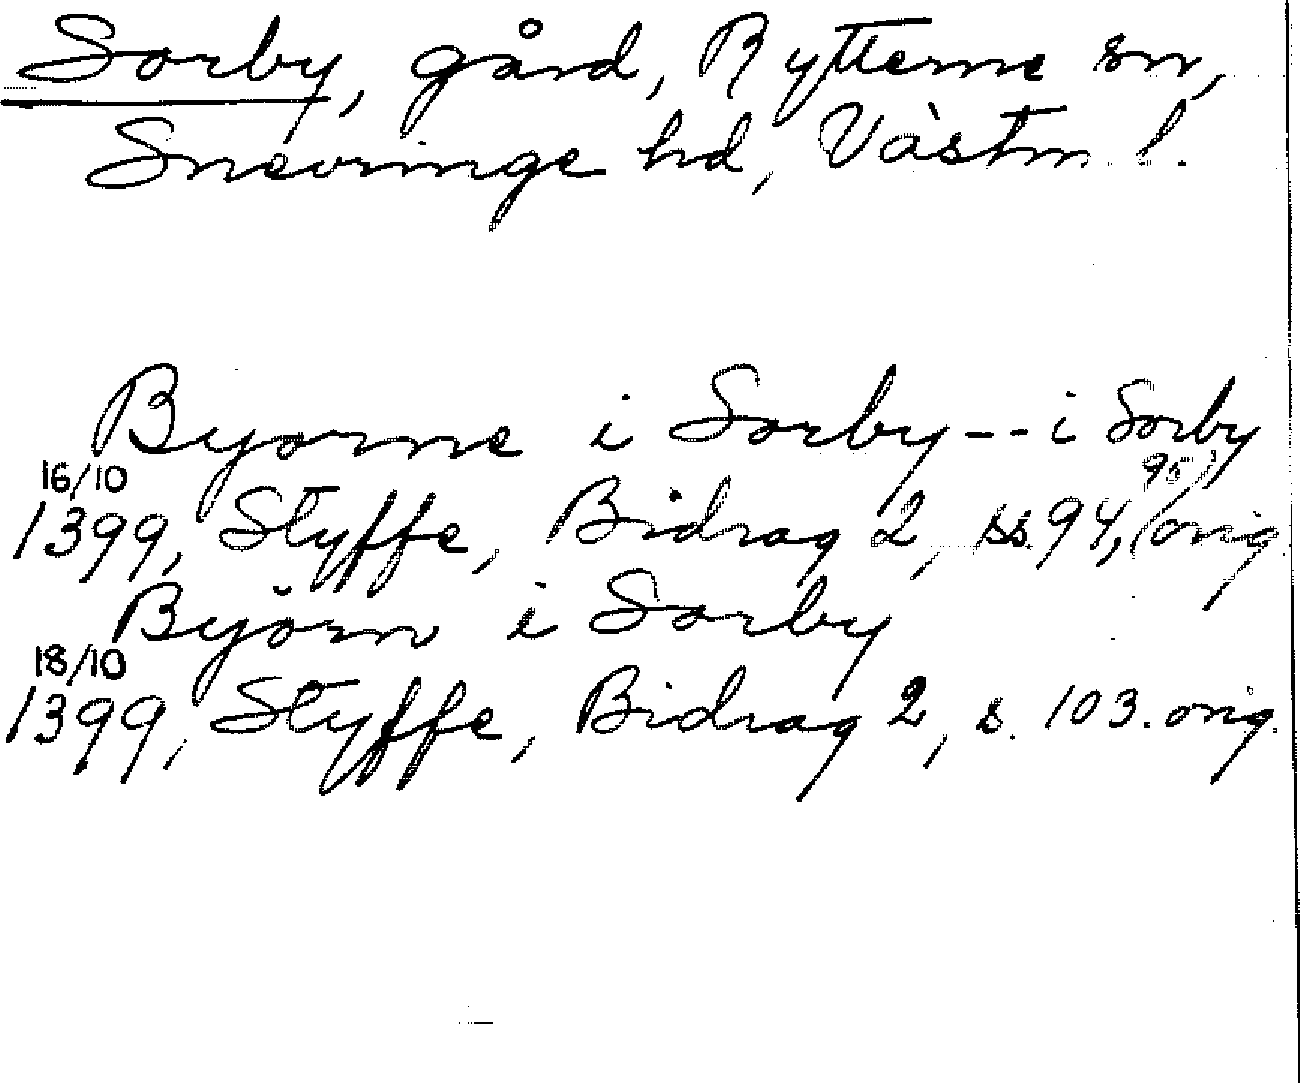 Sorby, gård, Rytterne sn,
Snevringe hd, Västm. l.
Byorne i Sorby -- i Sorby
16/10 95,
1399, Styffe, Bidrag 2, ss 94, orig
Byörn i Sorby
18/10
1399, Styffe, Bidrag 2, s. 103. orig.